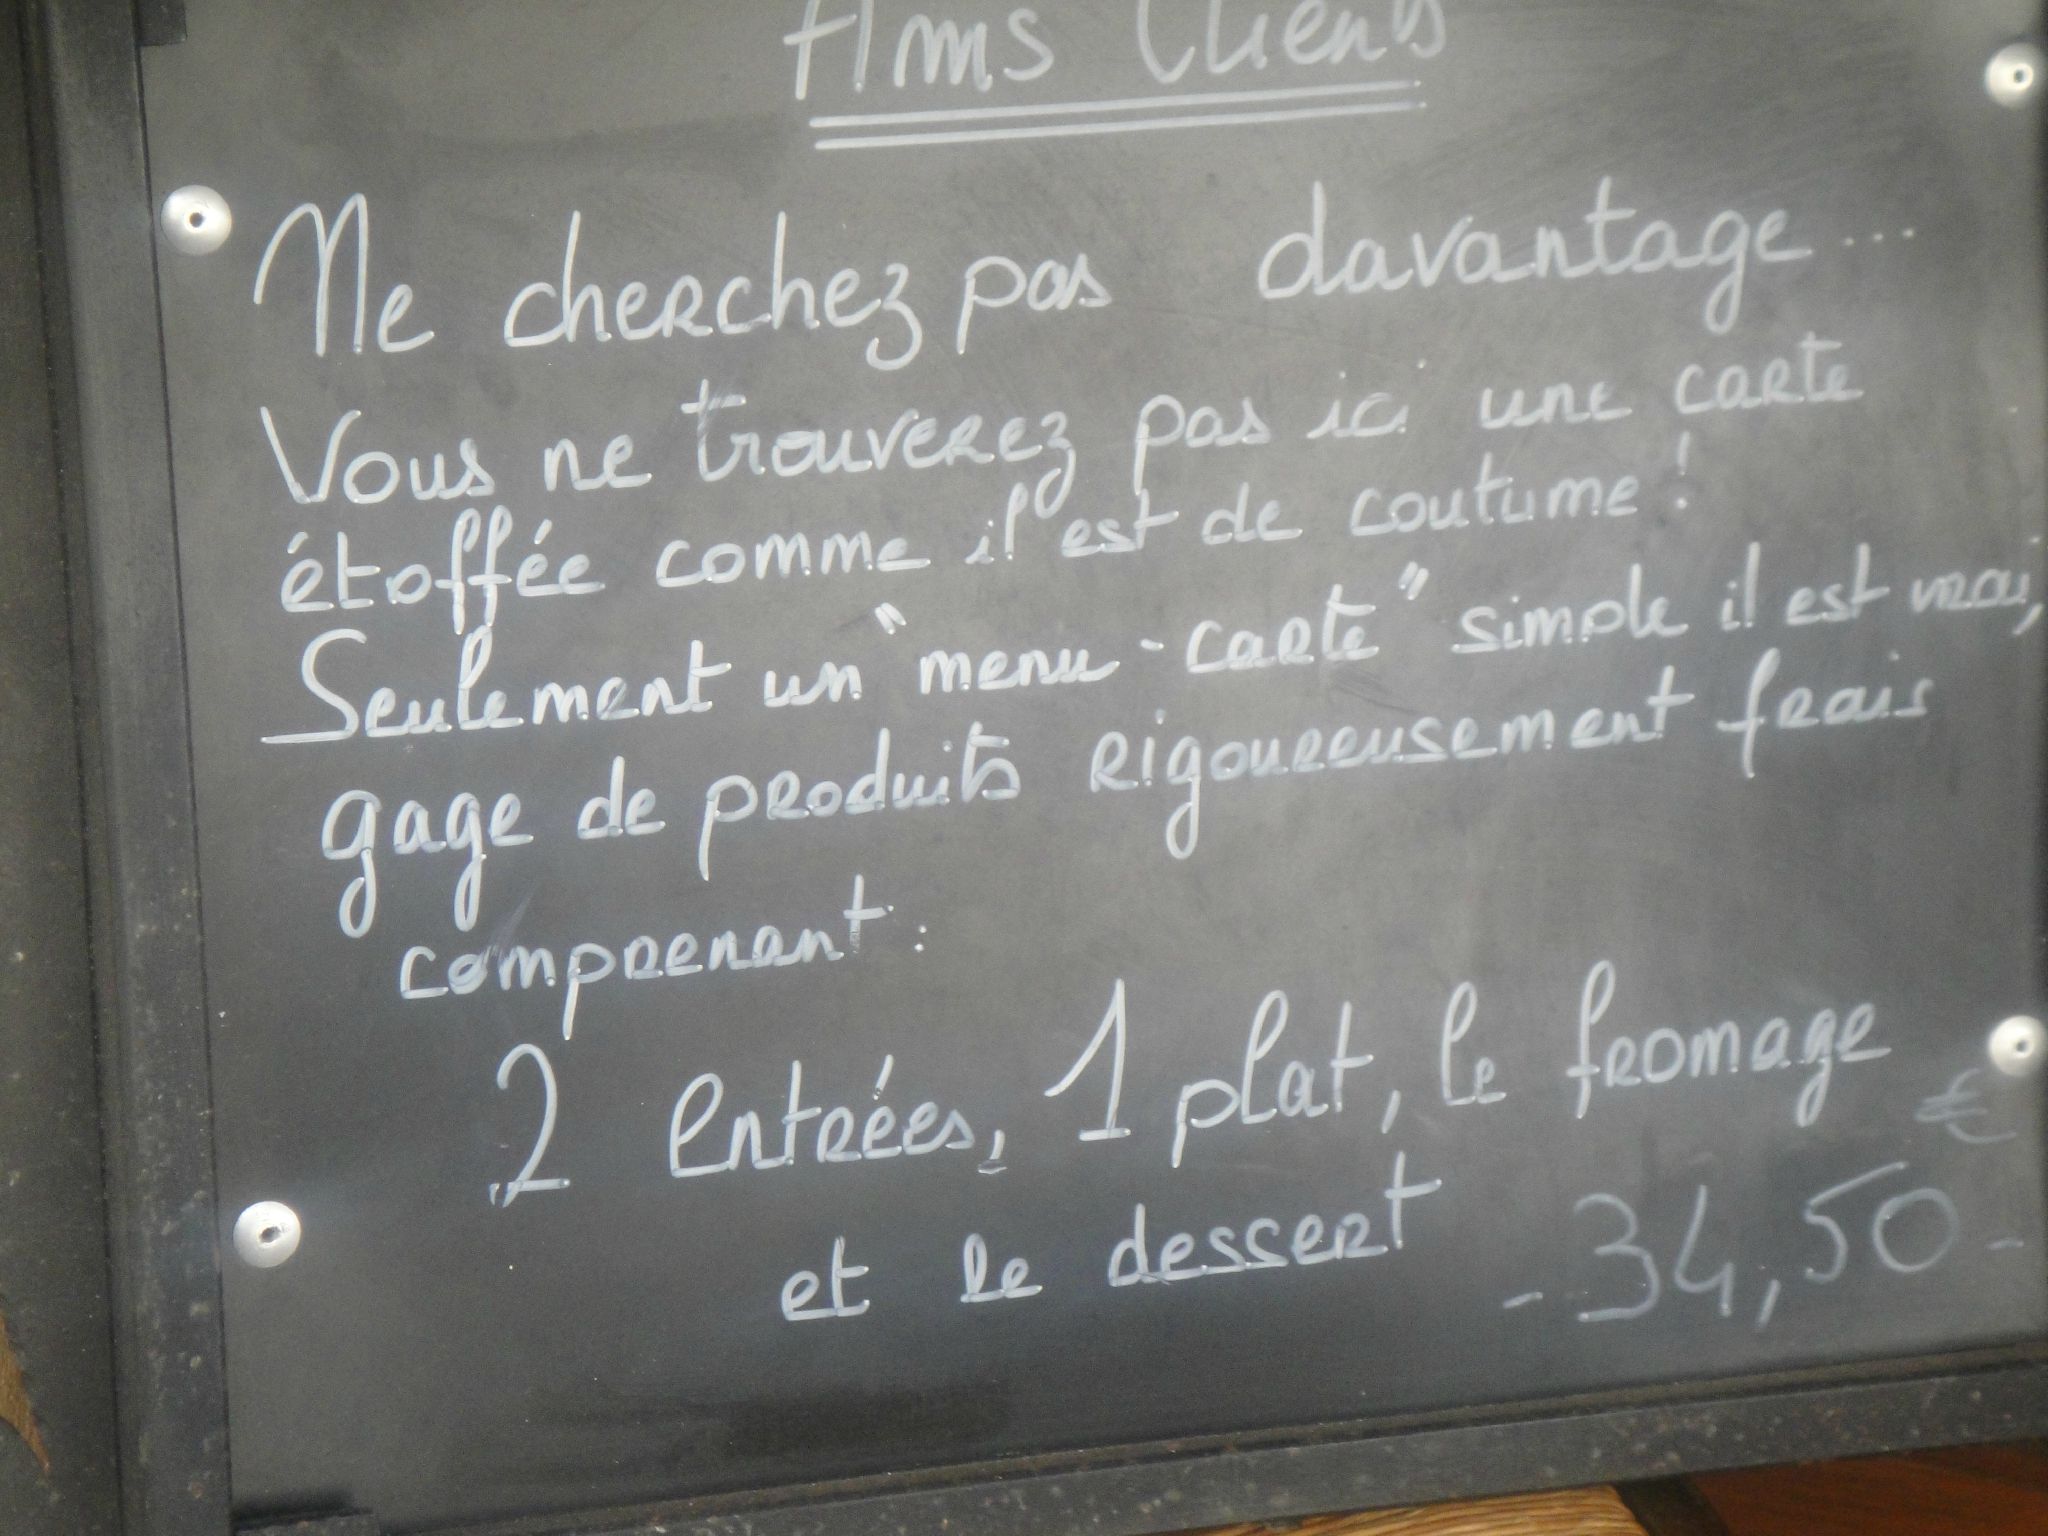 Amis Clients
Ne cherchez pas davantage...
Vous ne trouverez pas ici une carte
étoffée comme il est de coutume !
Seulement un "menu-carte" simple il est vrai,
gage de produits rigoureusement frais
comprenant :
2 entrées, 1 plat, le fromage
et le dessert - 34,50 € -